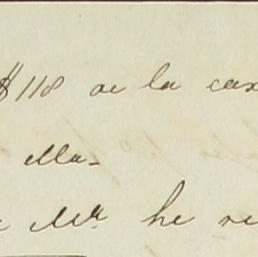 $118 de la cax
Ma-
Ma. he re